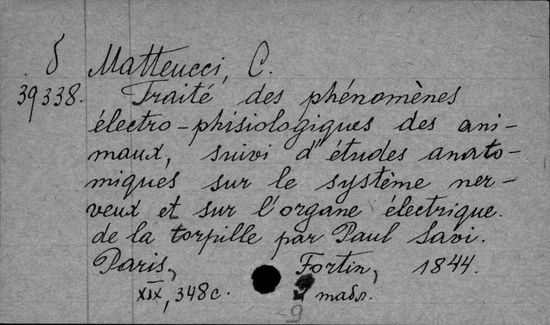 δ Matteucci, C.
39338. Traité des phénomènes
électro-phisiologiques des ani-
maux, suivi d'études anato-
miques sur le système ner-
veux et sur l'organe électrique.
de la torpille par Paul Savi.
Paris, Fortin, 1844.
XIX, 348c. табл.
-9